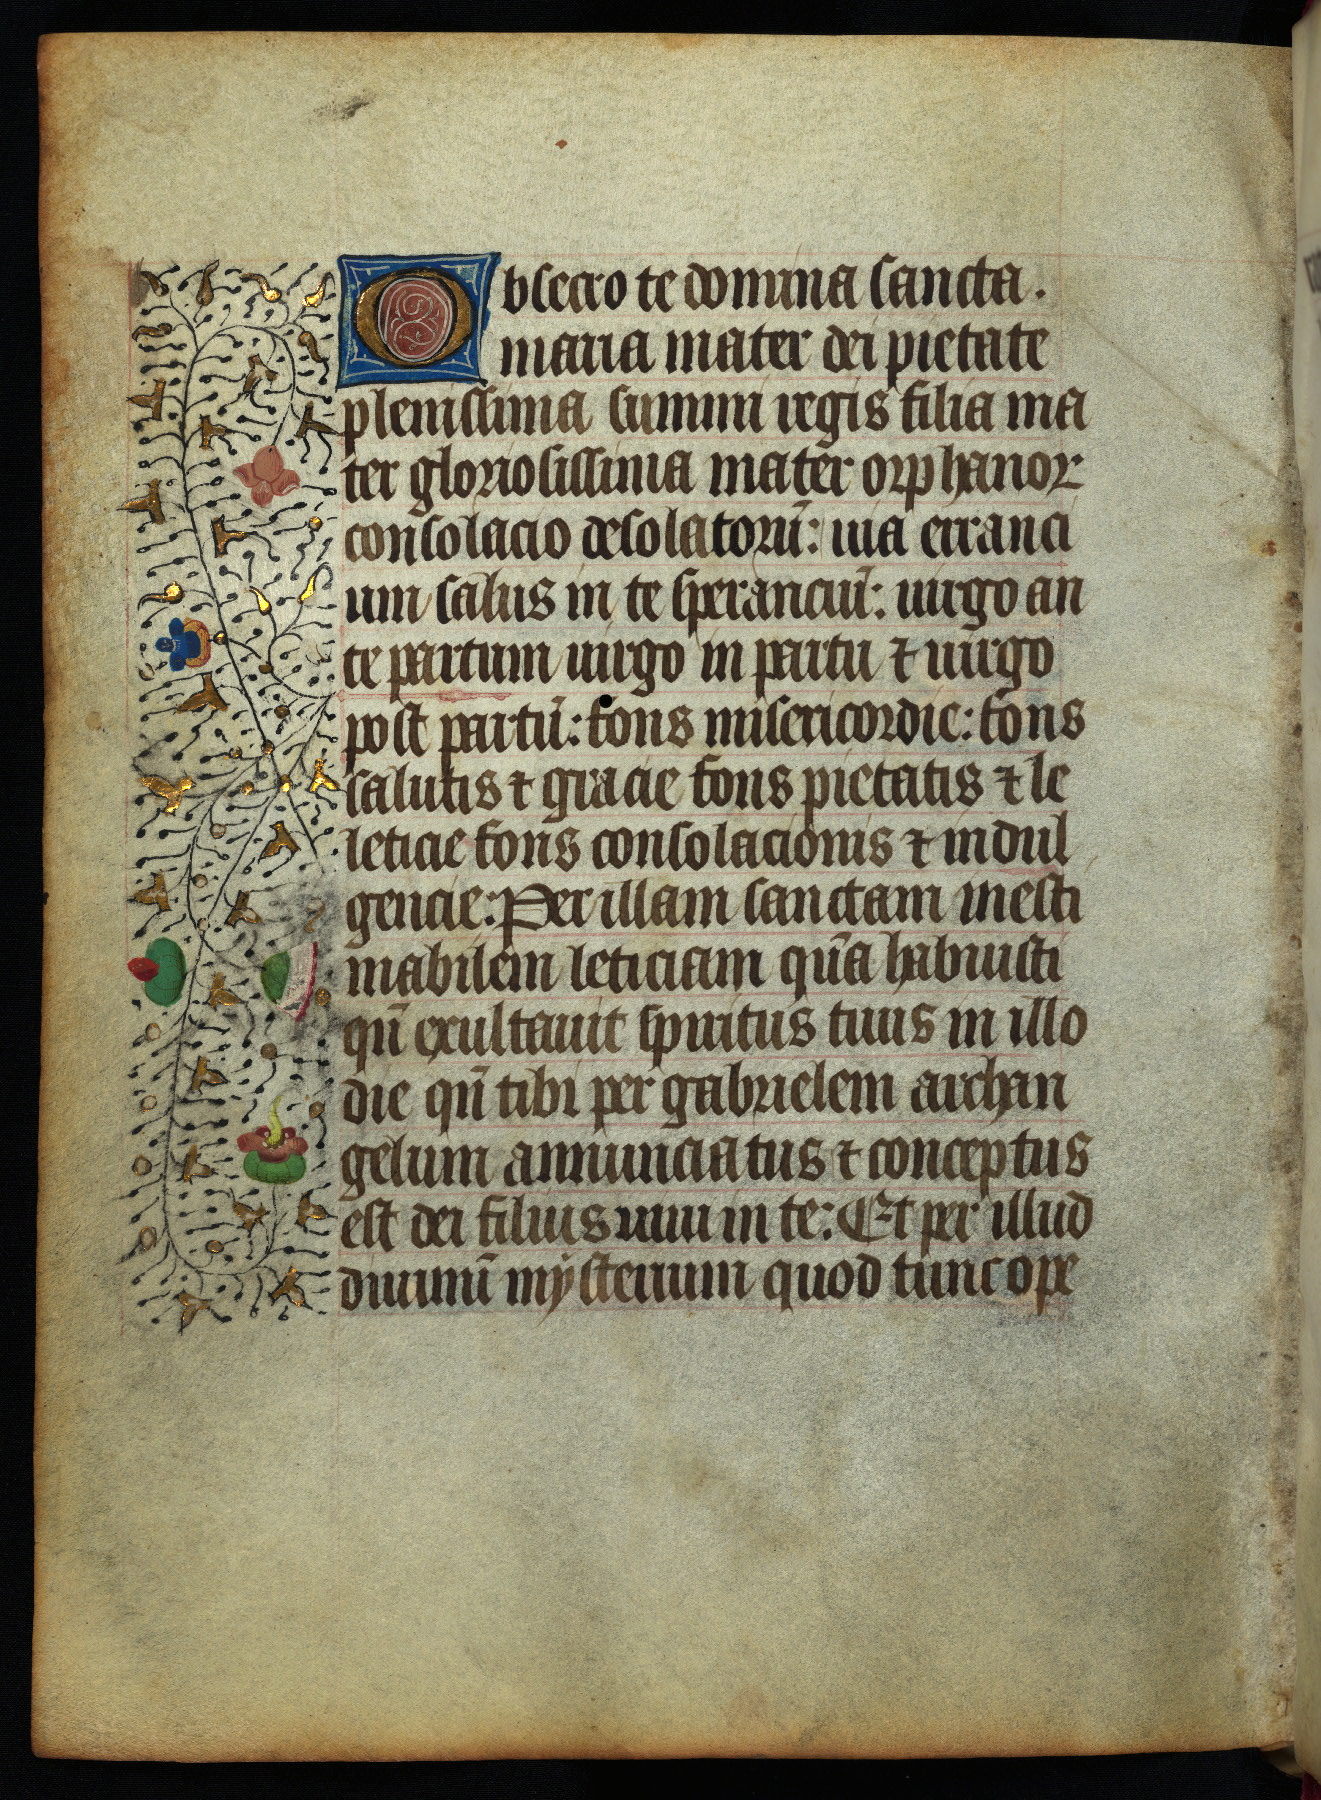 Obsecro te domina sancta.
maria mater dei pietate
plenissima summi regis filia ma
ter gloriosissima mater orphanoꝝ
consolacio desolatorū: uia erranci
um salus in te speranciū: uirgo an
te partum uirgo in partu ⁊ uirgo
post partū: fons misericordie: fons
salutis ⁊ gracie fons pietatis ⁊ le
leticie fons consolacionis ⁊ indul
gencie: Per illam sanctam inesti
mabilem leticiam qūa habuisti
qū exultauit spiritus tuus in illo
die qū tibi per gabrielem archan
gelum annunciatus ⁊ conceptus
est dei filius uiui in te: Et per illud
diuinū mẏsterium quod tunc ope